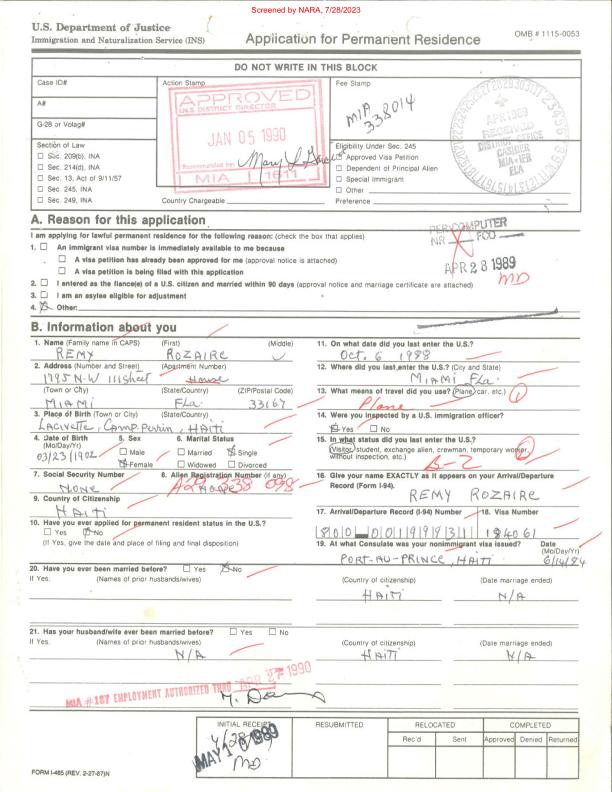 Screened by NARA, 7/28/2023
U.S. Department of Justice
Immigration and Naturalization Service (INS)
Application for Permanent Residence
OMB # 1115-0053
DO NOT WRITE IN THIS BLOCK
Case ID#
Action Stamp
Fee Stamp
A#
G-28 or Volag#
APPROVED
U.S. DISTRICT DIRECTOR
JAN 05 1990
Recommended by:
MIA 1611
MIA
338014
APR 1989
RECEIVED
DISTRICT OFFICE
CASHIER
ELA
Section of Law
☐ Sec. 209(b), INA
☐ Sec. 214(d), INA
☐ Sec. 13, Act of 9/11/57
☐ Sec. 245, INA
☐ Sec. 249, INA
Country Chargeable
Eligibility Under Sec. 245
☐ Approved Visa Petition
☐ Dependent of Principal Alien
☐ Special Immigrant
☐ Other
Preference
A. Reason for this application
I am applying for lawful permanent residence for the following reason: (check the box that applies)
PER COMPUTER
NR FCO
APR 28 1989
MD
1. ☐ An immigrant visa number is immediately available to me because
☐ A visa petition has already been approved for me (approval notice is attached)
☐ A visa petition is being filed with this application
2. ☐ I entered as the fiance(e) of a U.S. citizen and married within 90 days (approval notice and marriage certificate are attached)
3. ☐ I am an asylee eligible for adjustment
4. ☒ Other:
B. Information about you
1. Name (Family name in CAPS) (First) (Middle)
REMY ROZAIRE
2. Address (Number and Street) (Apartment Number)
1795 N.W 111 Street House
(Town or City) (State/Country) (ZIP/Postal Code)
MIAMI Fla. 33167
3. Place of Birth (Town or City) (State/Country)
Camp Perrin, HAITI
4. Date of Birth (Mo/Day/Yr)
03/23/1902
5. Sex
☐ Male
☒ Female
6. Marital Status
☐ Married ☒ Single
☐ Widowed ☐ Divorced
7. Social Security Number
NONE
8. Alien Registration Number (if any)
None
098
9. Country of Citizenship
HAITI
10. Have you ever applied for permanent resident status in the U.S.?
☐ Yes ☒ No
(If Yes, give the date and place of filing and final disposition)
11. On what date did you last enter the U.S.?
Oct. 6 1988
12. Where did you last enter the U.S.? (City and State)
MIAMI Fla.
13. What means of travel did you use? (Plane, car, etc.)
Plane
14. Were you inspected by a U.S. immigration officer?
☒ Yes ☐ No
15. In what status did you last enter the U.S.?
(Visitor, student, exchange alien, crewman, temporary worker, without inspection, etc.)
B-2
16. Give your name EXACTLY as it appears on your Arrival/Departure
Record (Form I-94).
REMY ROZAIRE
17. Arrival/Departure Record (I-94) Number 18. Visa Number
184061
19. At what Consulate was your nonimmigrant visa issued? Date (Mo/Day/Yr)
PORT-AU-PRINCE, HAITI 6/14/84
20. Have you ever been married before? ☐ Yes ☒ No
If Yes, (Names of prior husbands/wives) (Country of citizenship) (Date marriage ended)
HAITI N/A
21. Has your husband/wife ever been married before? ☐ Yes ☐ No
If Yes, (Names of prior husbands/wives) (Country of citizenship) (Date marriage ended)
N/A HAITI N/A
MIA #187 EMPLOYMENT AUTHORIZED THRU APR 27 1990
INITIAL RECEIPT RESUBMITTED RELOCATED COMPLETED
Rec'd Sent Approved Denied Returned
MD
FORM I-485 (REV. 2-27-87)N